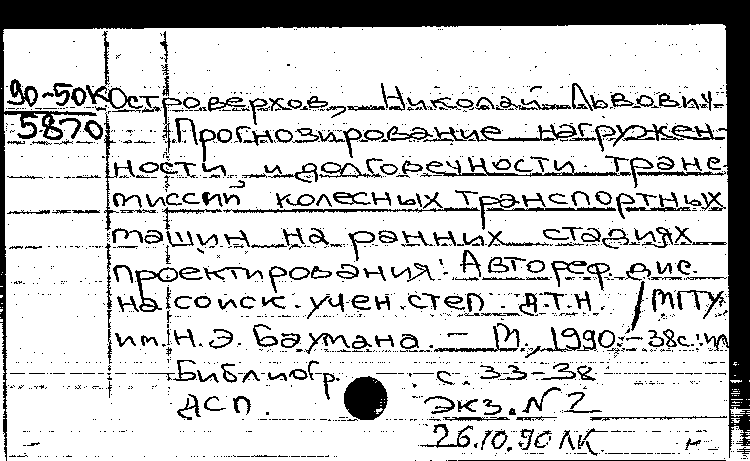 90-50К Островерхов, Николай Львович
5870 Прогнозирование нагружен-
ности и долговечности транс
миссий колесных транспортных
машин на ранних стадиях
проектирования: Автореф. дис.
на соиск. учен. степ. д.т.н. / МГТУ
им. Н.Э. Баумана. - М., 1990. - 38с.: ил
Библиогр. : с. 33-38
ДСП. Экз. N 2
26.10.90 ЛК н